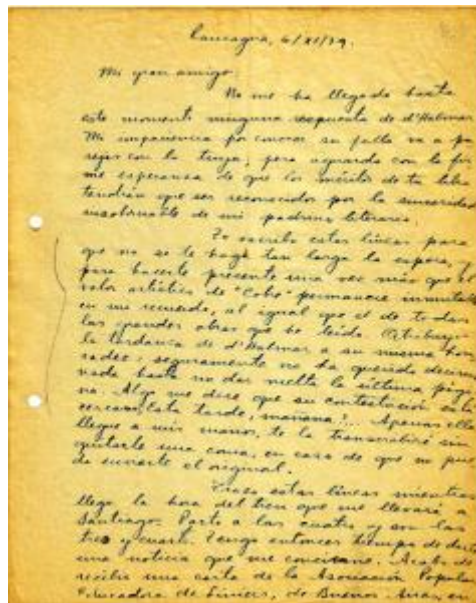 Rancagua, 6/XI/39.
Mi gran amigo:
No me ha llegado hasta
este momento ninguna respuesta de d'Halmar
Mi impaciencia por conocer su fallo va a pa
rejas con la tuya, pero aguardo con la fir
me esperanza de que los méritos de tu libro
tendrán que ser reconocidos por la sinceridad
insobornable de mi padrino literario.
Te escribo estas líneas para
que no se te haga tan larga la espera, y
para hacerte presente una vez más que el
valor artístico de "Cobre" permanece inmutable
en mi recuerdo, al igual que el de todas
las grandes obras que he leído. Atribuyo
la tardanza de d'Halmar a su misma hon
radez; seguramente no ha querido decirme
nada hasta no dar vuelta la última pági
na. Algo me dice que su contestación está
cercana. Esta tarde, mañana?... Apenas ella
llegue a mis manos, te la transcribiré sin
quitarle una coma, en caso de que no pue
da enviarte el original.
Trazo estas líneas mientras
llega la hora del tren que me llevará a
Santiago. Parto a las cuatro y son las
tres y cuarto. Tengo entonces tiempo de darte
una noticia que me concierne. Acabo de
recibir una carta de la Asociación Popular
Educadora de Liniers, de Buenos Aires, en